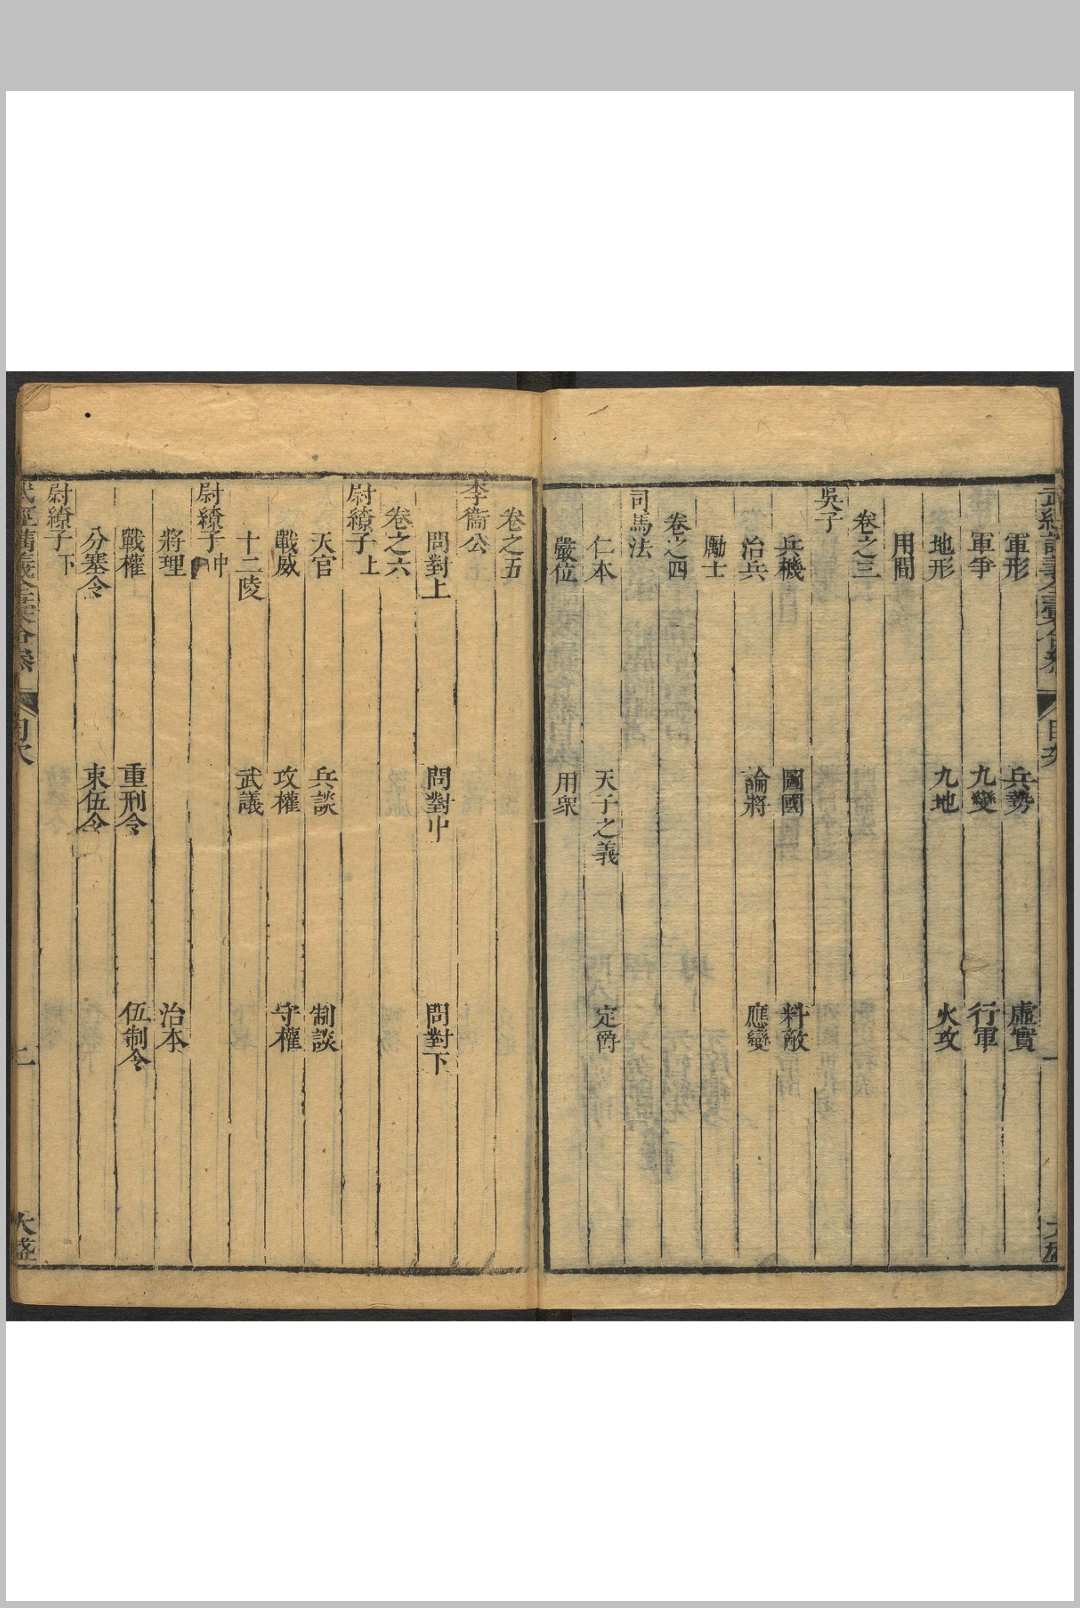 軍形 兵勢 虛實
軍爭 九變 行軍
地形 九地 火攻
用間
卷之三
吳子
兵機 圖國 料敵
治兵 論將 應變
勵士
卷之四
司馬法
仁本 天子之義 定爵
嚴位 用衆
卷之五
李衞公
問對上 問對中 問對下
卷之六
尉繚子上
天官 兵談 制談
戰威 攻權 守權
十二陵 武議
尉繚子中
將理 治本
戰權 重刑令 伍制令
分塞令 束伍令
尉繚子下
目次 二 大盛